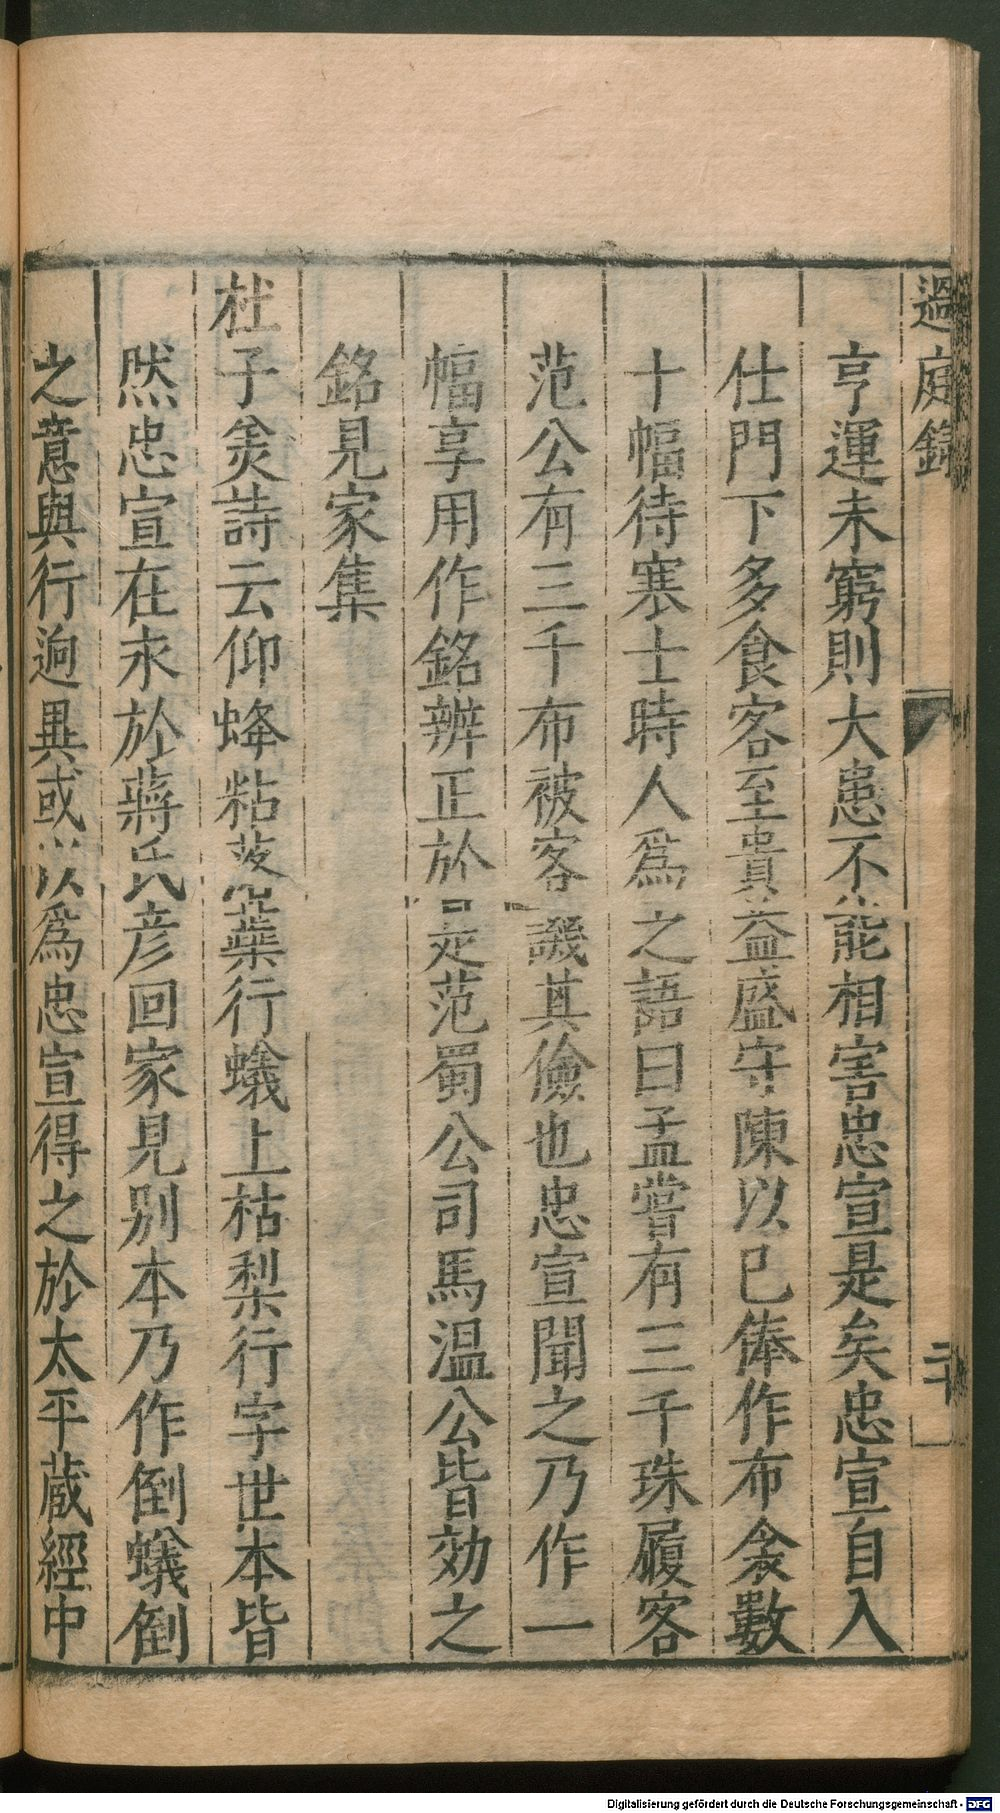 過庭錄
二十
亨運未窮則大患不能相害忠宣是矣忠宣自入
仕門下多食客至貴益盛守陳以已俸作布衾數
十幅待寒士時人爲之語曰孟嘗有三千珠履客
范公有三千布被客譏其儉也忠宣聞之乃作一
幅享用作銘辨正於是范蜀公司馬温公皆効之
銘見家集
杜子美詩云仰蜂粘落蘂行蟻上枯梨行字世本皆
然忠宣在永於蔣氏彦回家見别本乃作倒蟻倒
之意與行逈異或以爲忠宣得之於太平蔵經中
Digitalisierung gefördert durch die Deutsche Forschungsgemeinschaft - DFG